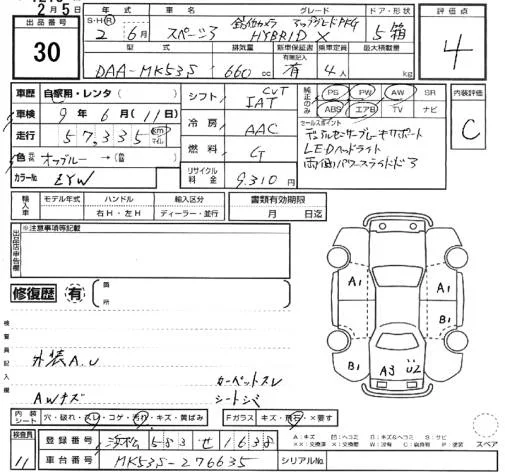 2月5日
出品番号
30
年式 車名 グレード ドア・形状
S・H・R 2年 6月 スペーシア HYBRID X 5 箱
型式 排気量 新車保証書 乗車定員 最大積載量
有無記入
DAA-MK53S 660cc 有 4人 kg
評価点
4
車歴 自家用・レンタ( )
車検 9年 6月(11日)
走行 57,335 km マイル
色 元色 オフブルー →(色替)
カラーNo. ZYW
シフト CVT IAT
冷房 AAC
燃料 G
リサイクル料金 9,310円
純正のみ
PS PW AW SR
ABS エアB TV ナビ
セールスポイント
デュアルセンサーブレーキサポート
LEDヘッドライト
両側パワースライドドア
内装評価
C
輸入車 モデル年式 ハンドル 輸入区分
右H・左H ディーラー・並行
書類有効期限
月 日迄
出品店申告欄
※注意事項等記載
修復歴 有 箇所
検査員記入欄
外装A.U
AWキズ
カーペットスレ
シートシミ
A1 A1
B1 B1
A3 U2
内装シート 穴・破れ・スレ・コゲ・汚れ・キズ・黄ばみ
Fガラス キズ・飛石・×要す
A:キズ U:凹ヘコミ B:キズ&ヘコミ S:サビ
スペア
検査員 11
登録番号 浜松 583 せ 1638
車台番号 MK53S-276635
シリアルNo.